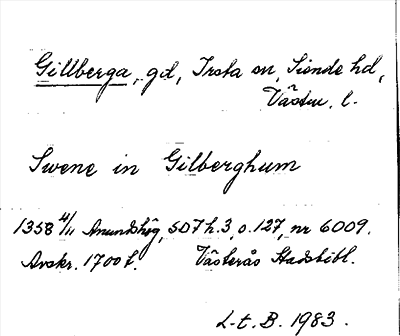 Gillberga, gd, Irsta sn, Siende hd,
Västm. l.
Swene in Gilberghum
1358 4/11 Anundshög, SD7 h.3, o.127, nr 6009.
Avskr. 1700 t. Västerås Stadsbibl.
L-t. B. 1983.